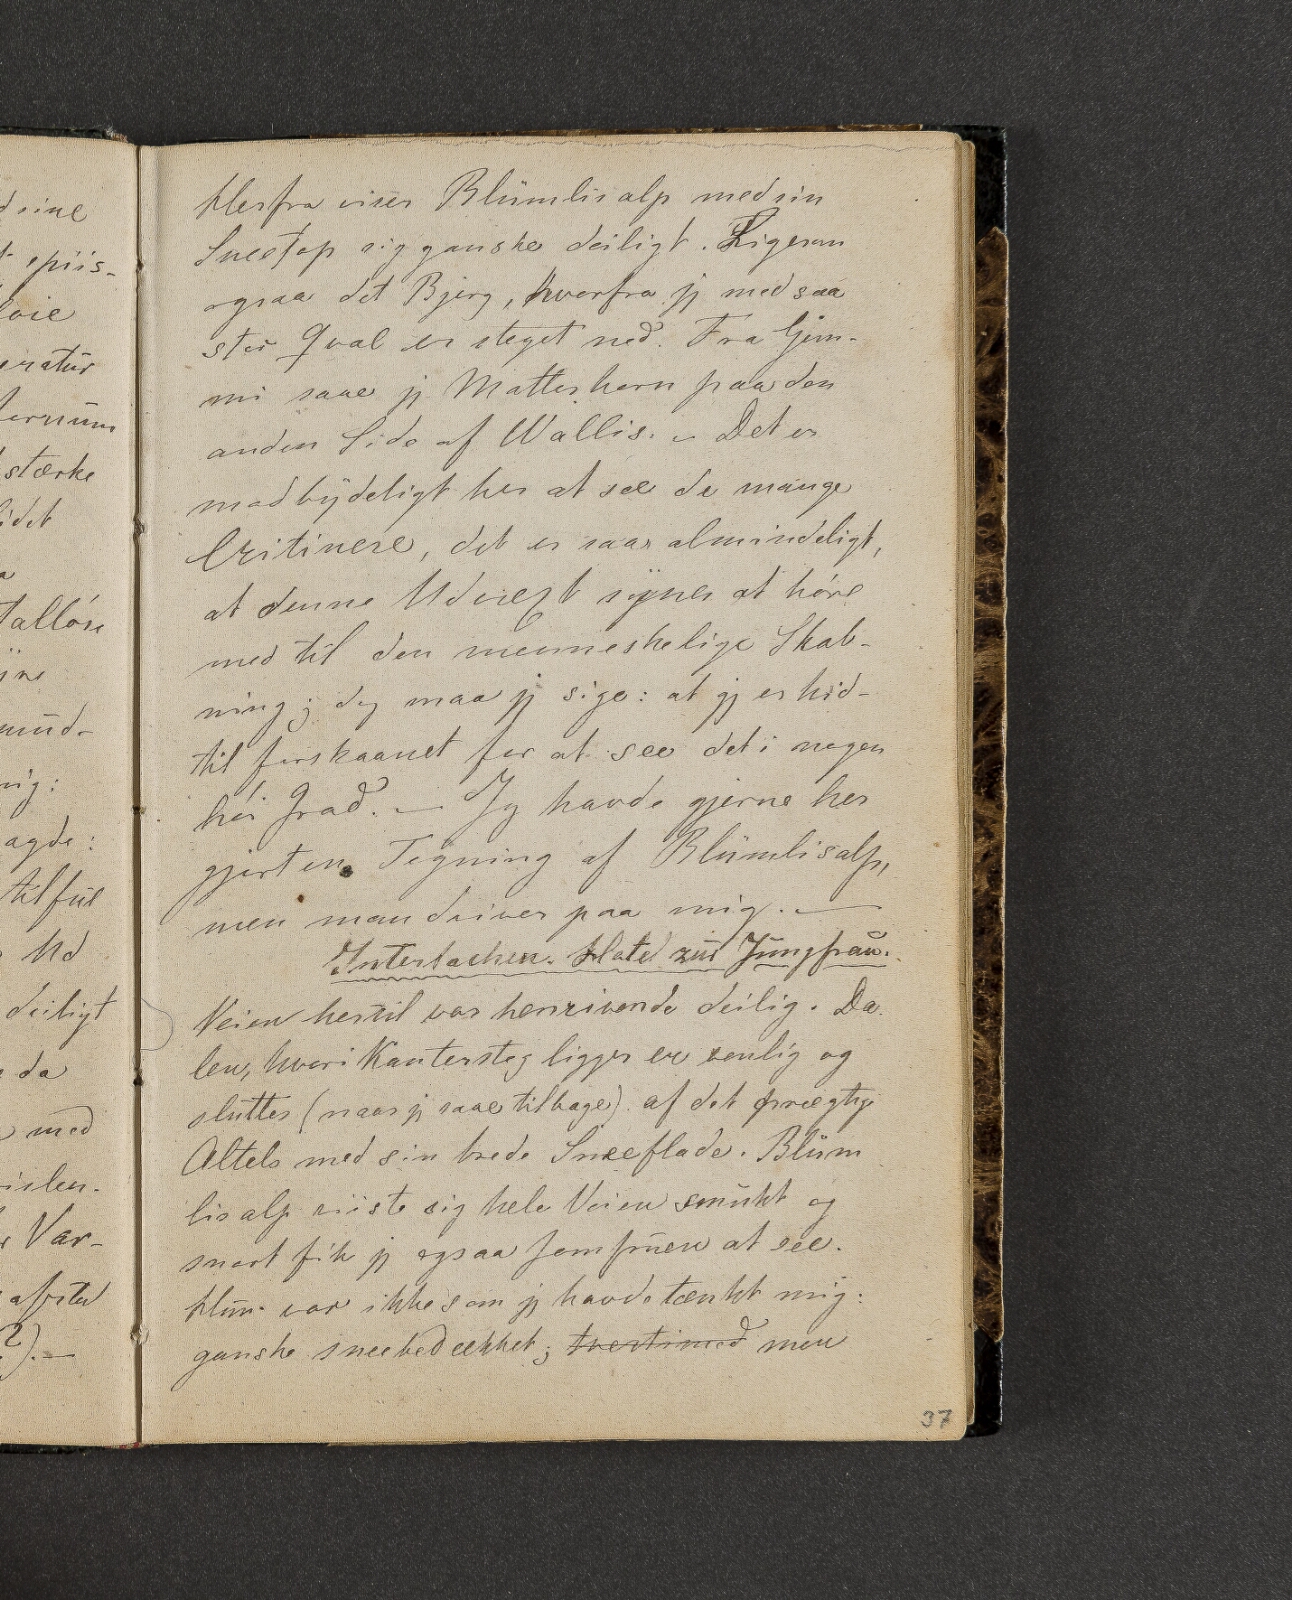 d sine
t spiis-
loie
eratur
ternum
stærke
idet
a
talløse
ine
mund-
nig:
agde:
tilful
Ud
deiligt
da
med
islen.
Var-
afsted
?).—
Herfra viser Blümlisalp med sin
Sneetop sig ganske deiligt. Ligesom
ogsaa det Bjerg, hvorfra jg med saa
stor Qval er steget ned. Fra Gem-
mi saae jg Matterhorn paa den
anden Side af Wallis. – Det er
modbydeligt her at see de mange
Critinere, det er saa almindeligt,
at denne Udvext synes at høre
med til den menneskelige Skab-
ning; dog maa jg sige: at jg er hid-
til forskaanet for at see det i nogen
høi Grad. — Jeg havde gjerne her
gjort en Tegning af Blümlisalp,
men man driver paa mig. —
Interlachen. Hotel zur Jungfrau.
Veien hertil var henrivende deilig. Da-
len, hvori Kantersteg ligger er venlig og
sluttes (naar jg saae tilbage) af det prægtige
Altels med sin brede Sneeflade. Blüm
lisalp viiste sig hele Veien smukt og
snart fik jg ogsaa Jomfruen at see.
Hun var ikke som jg havde tænkt mig:
ganske sneebedækket; tvertimod men
37